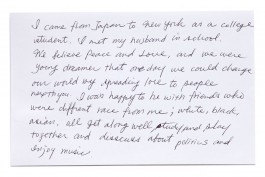 I came from Japan to New York as a college
student. I met my husband in school.
We believe Peace and Love, and we were
young dreamer that one day we could change
our would by spreading love to people
next to you. I was happy to be with friends who
were diffrent race from me; white, black,
asian. all get along well study and play
together and disscuss about politics and
enjoy music